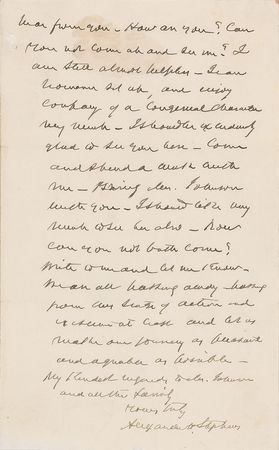 hear from you - How are you? Can
you not come up and see me? I
am still almost helpless - I can
however sit up, and enjoy
company of a congenial character
very much - I should be exceedingly
glad to see you here - Come
and spend a week with
me - Bring Mrs. Johnson
with you - I should like very
much to see her also - Now
can you not both come?
Write to me and let me know.
We are all passing away - passing
from our state of action and
existence at least and let us
make our journey as pleasant
and agreeable as possible -
My kindest regards to Mrs. Johnson
and all the family
Yours truly
Alexander H. Stephens